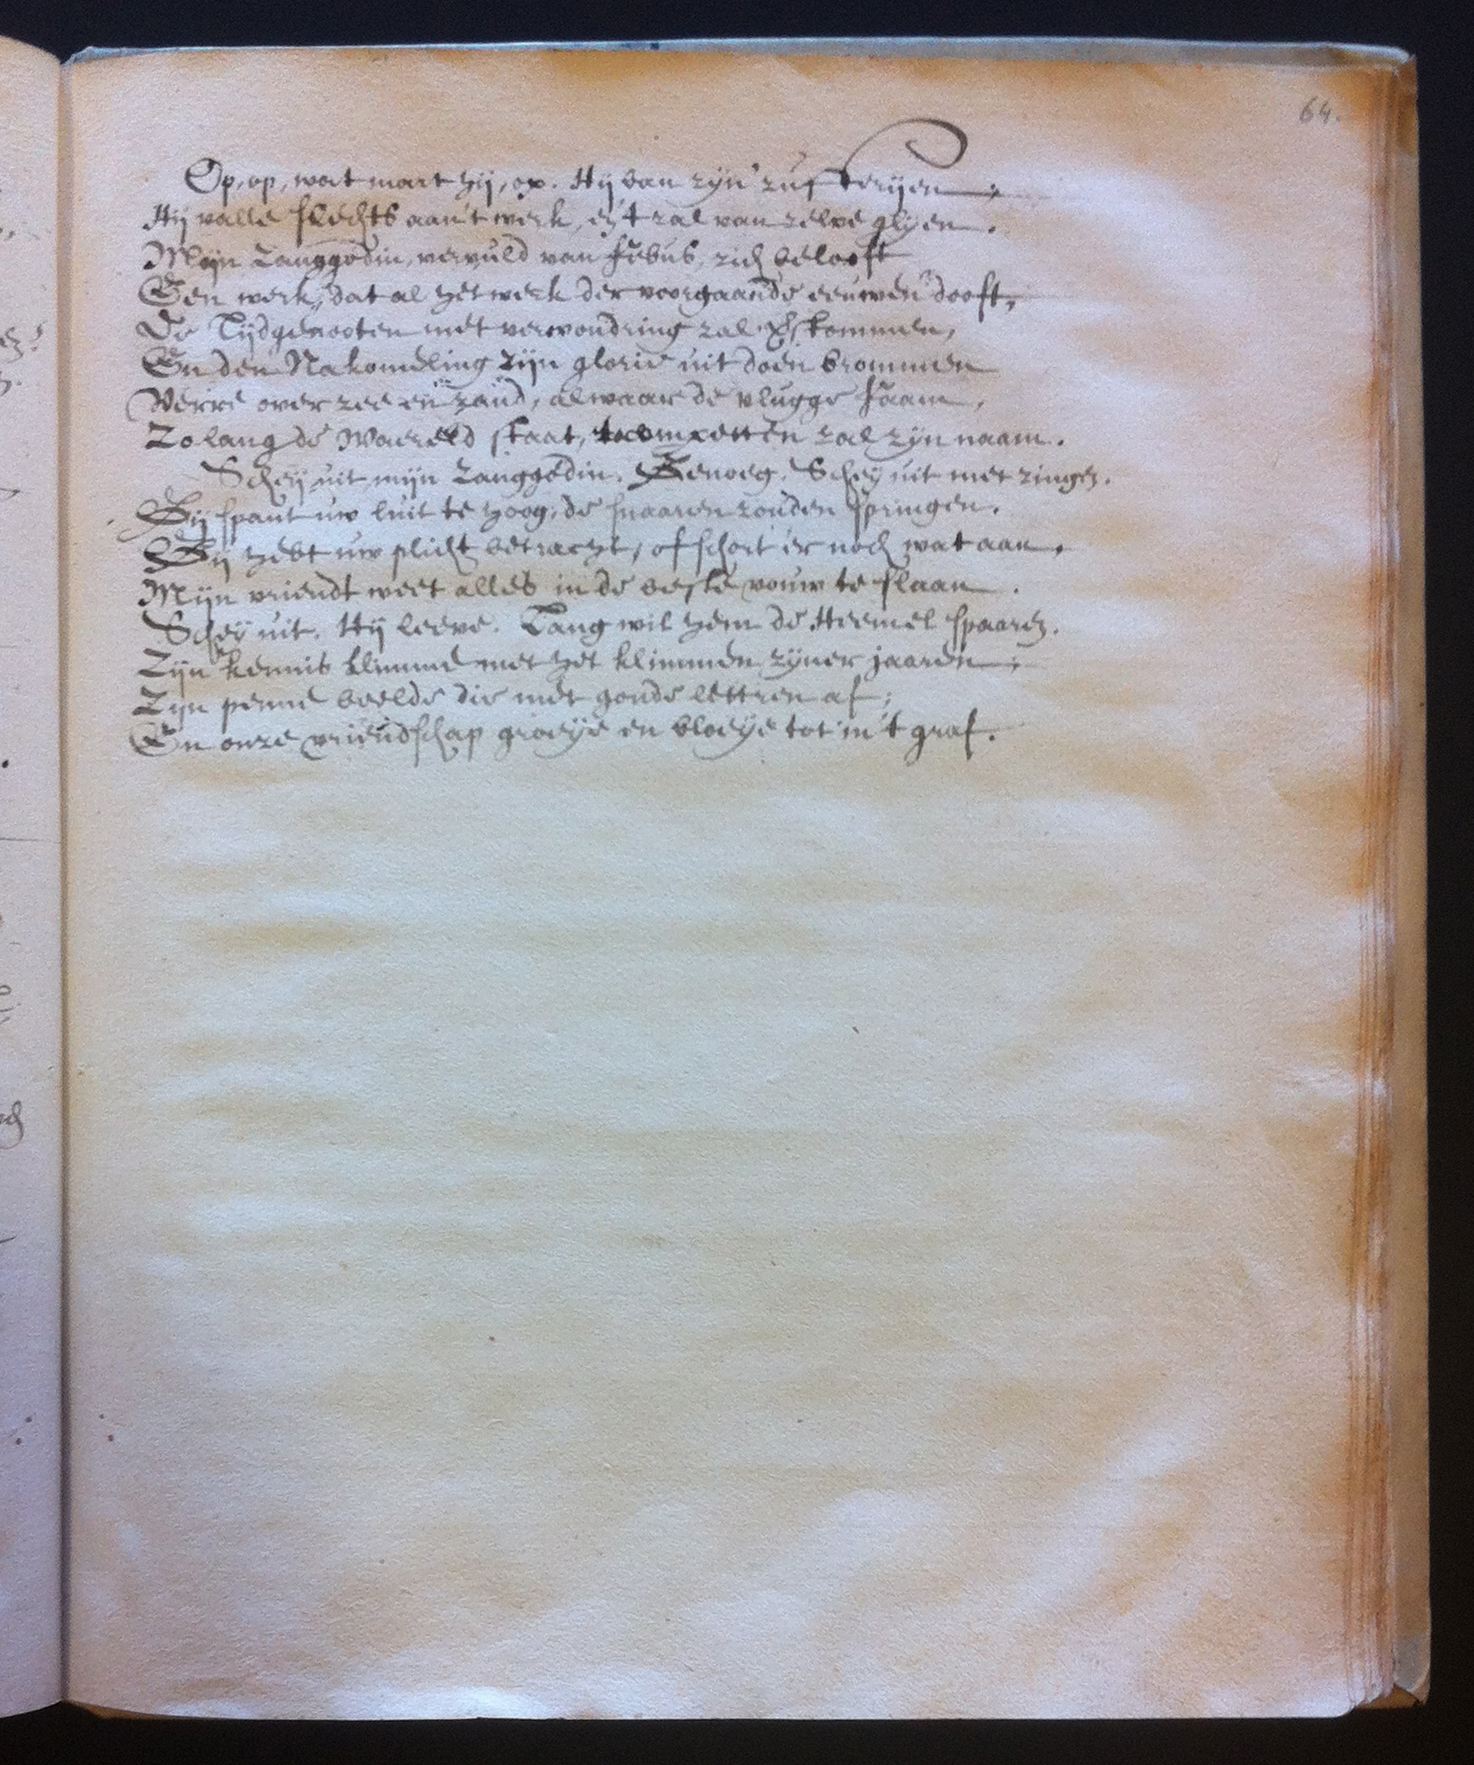 64.
Op, op, wat mart hij, op. Hij ban zijn zuf
Hij valle slechts aan 't werk, en 't zal van zelve glyen.
Mijn Zanggodin, vervuld van Febus, zich belooft
Een werk, dat al het werk der voorgaande eeuwen dooft,
De Tijdgenooten met verwondring zal
En den Nakomeling zijn glorie uit doen brommen
Verre over zee en zand, alwaar de vlugge Faam,
Zo lang de Waereld staat, trompetten zal zijn naam.
Schey uit mijn Zanggodin. Genoeg. Schey uit met zingen.
Gij spant uw luit te hoog; de snaaren zouden springen.
Gij hebt uw plicht betracht, of schort 'er noch wat aan,
Mijn vriendt weet alles in de beste vouw te slaan.
Schey uit. Hij leeve. Lang wil hem de Heemel spaaren.
Zijn kennis klimme met het klimmen zijner jaaren;
Zijn penne beelde die met goude lettren af;
En onze vriendschap groeye en bloeye tot in 't graf.